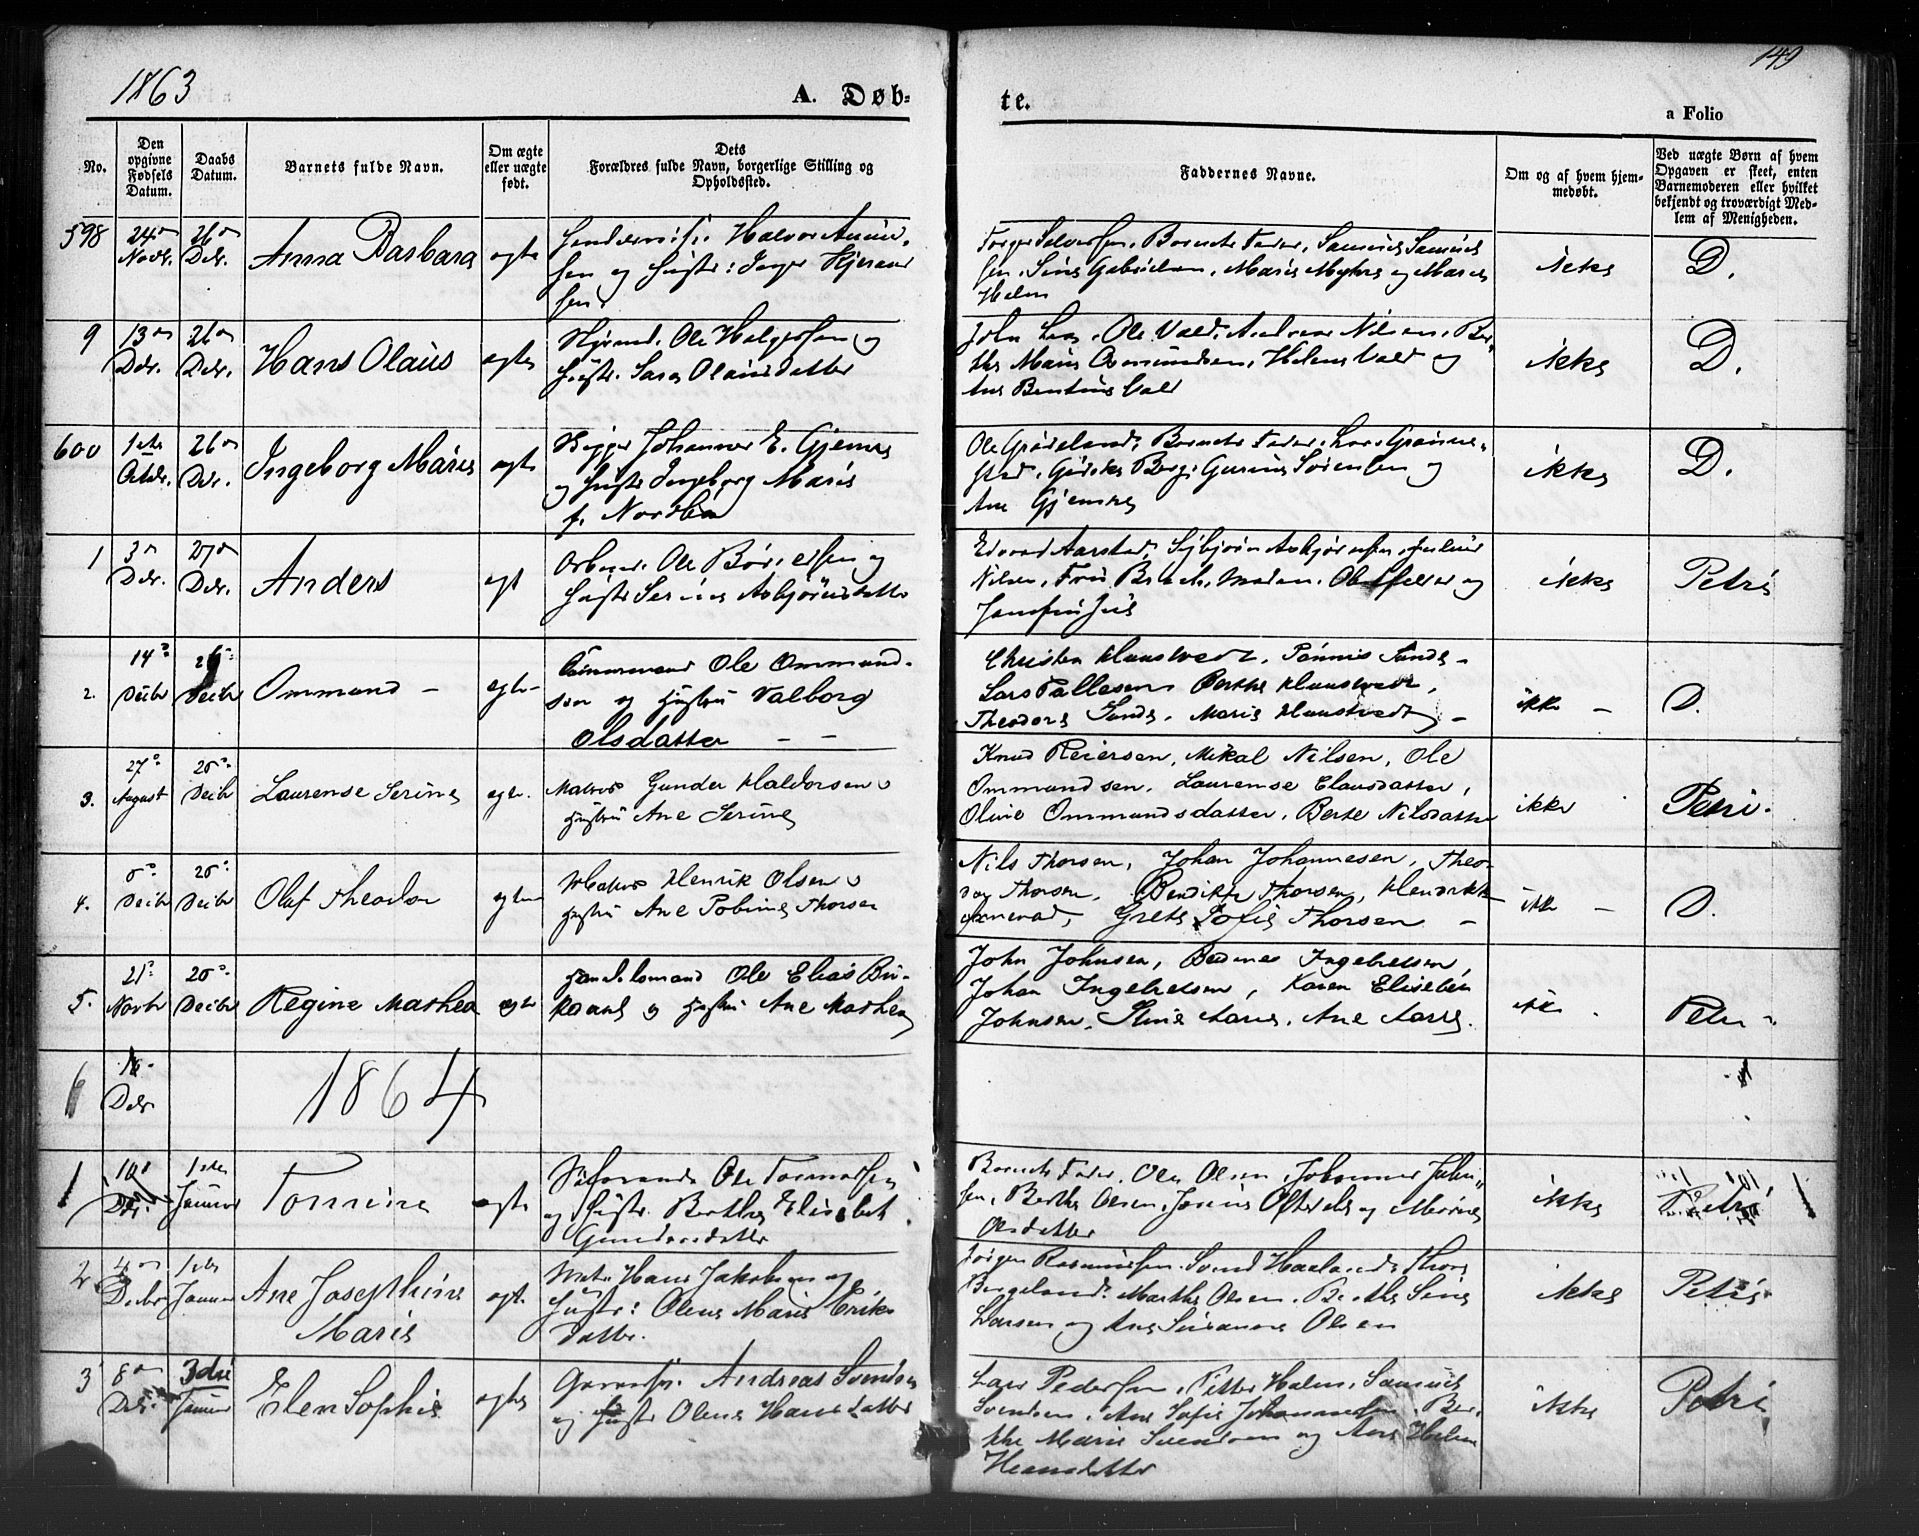 1863
A. Døb-
te.
149
a Folio
No.
Den opgivne Fødsels Datum.
Daabs Datum.
Barnets fulde Navn.
Om ægte eller uægte født.
Dets Forældres fulde Navn, borgerlige Stilling og Opholdssted.
Faddernes Navne.
Om og af hvem hjemmedøbt.
Ved uægte Børn af hvem Opgaven er skeet, enten Barnemoderen eller hvilket bekjendt og troværdigt Medlem af Menigheden.
598
24
Novbr.
26
Dcbr.
Anna Barbara
ægte
Halvor
sen og Hustr: Inger
sen
Barnets Fader, Samuel Samuel
sen, Gabrielsen, Marie Myhre og
Helm
ikke
D.
9
13
Dcbr.
26
Dcbr.
Hans Olaus
ægte
Ole Helgesen og
Hustr. Sara Olausdatter
Ole Vald, Andreas Nilsen, Ber-
the Marie Osmundsen, Helene Vald og
Ane Bentine Vald
ikke
D.
600
1ste
Octbr.
26
Dcbr.
Ingeborg Marie
ægte
Johannes E. Gjemre
og Hustr Ingeborg Marie
f. Nordbø
Ole Grødeland, Barnets Fader, Lars
Berg, Sørensen og
Ane Gjemre
ikke
D.
1
3
Dcbr.
27
Dcbr.
Anders
ægt
Ole Børresen og
Hustr Serine Asbjørnsdatter
Edvard Aarstad, Asbjørnsen,
Nilsen, og
ikke
Petri
2.
14
Decbr
26
Decbr
Ommund -
egte-
Ole Ommund-
sen og Hustru Valborg
Olsdatter - -
Christen Haustvedt, Tønnis Sunde -
Lars Tallesen Berthe Haustvedt,
Theodore Sunde, Marie Haustvedt -
ikke -
D.
3.
27
August
26
Decbr
Laurense Serine
egte.
Matros Gunder Haldorsen
Hustru Ane Serine
Knud Reiersen, Mikal Nilsen, Ole
Ommundsen, Laurense Elausdatter,
Olivie Ommundsdatter, Berte Nilsdatter
ikke
Petri.
4.
Decbr
26
Decbr
Oluf Theodor
egte
Matros Henrik Olsen
Hustru Ane Tobine Thorsen
Nils Thorsen, Johan Johannesen, Theo-
dor Thorsen, Bendikte Thorsen, Hendrikke
Grete Sofie Thorsen -
ikke -
D.
5.
21
Novbr
26
Decbr
Regine Mathea
egte
Handelsmand Ole Elias Bu-
og Hustru Ane Mathea
John Johnsen, Ingebretsen,
Johan Ingebretsen, Karen Elisebeth
Johnsen, Stine Aarre, Ane Aarre.
ikke.
Petri.
6
Dcbr
1864
1
10
Dcbr.
1ste
Januar
Tomine
ægte
Ole Tormodsen
og Hustr. Berthe Elisabet
Gundersdatter
Barnets Fader, Ole Olsen, Johannes
sen, Berthe Olsen, og
Olsdatter
ikke
Petri
2
4
Decbr
1ste
Januar
Ane Josephine
Marie
ægte.
Hans Jakobsen og
Hustr: Olene Marie Eriks
datter.
Jørgen Rasmussen, Svend Haaland, Thore
Bergeland, Marthe Olsen, Berthe Sine
Larsen og Ane Susanne Olsen
ikke
Petri
3
8
Dcbr.
3die
Januar
Elen Sophie
ægte
Andreas Svendsen
og Hustr Olene Hansdatter
Lars Pedersen, Petter Halm, Samuel
Svendsen, Ane Sofie Johannesen, Ber-
the Marie Svendsen og Ane Helene
Hansdatter
ikke
Petri